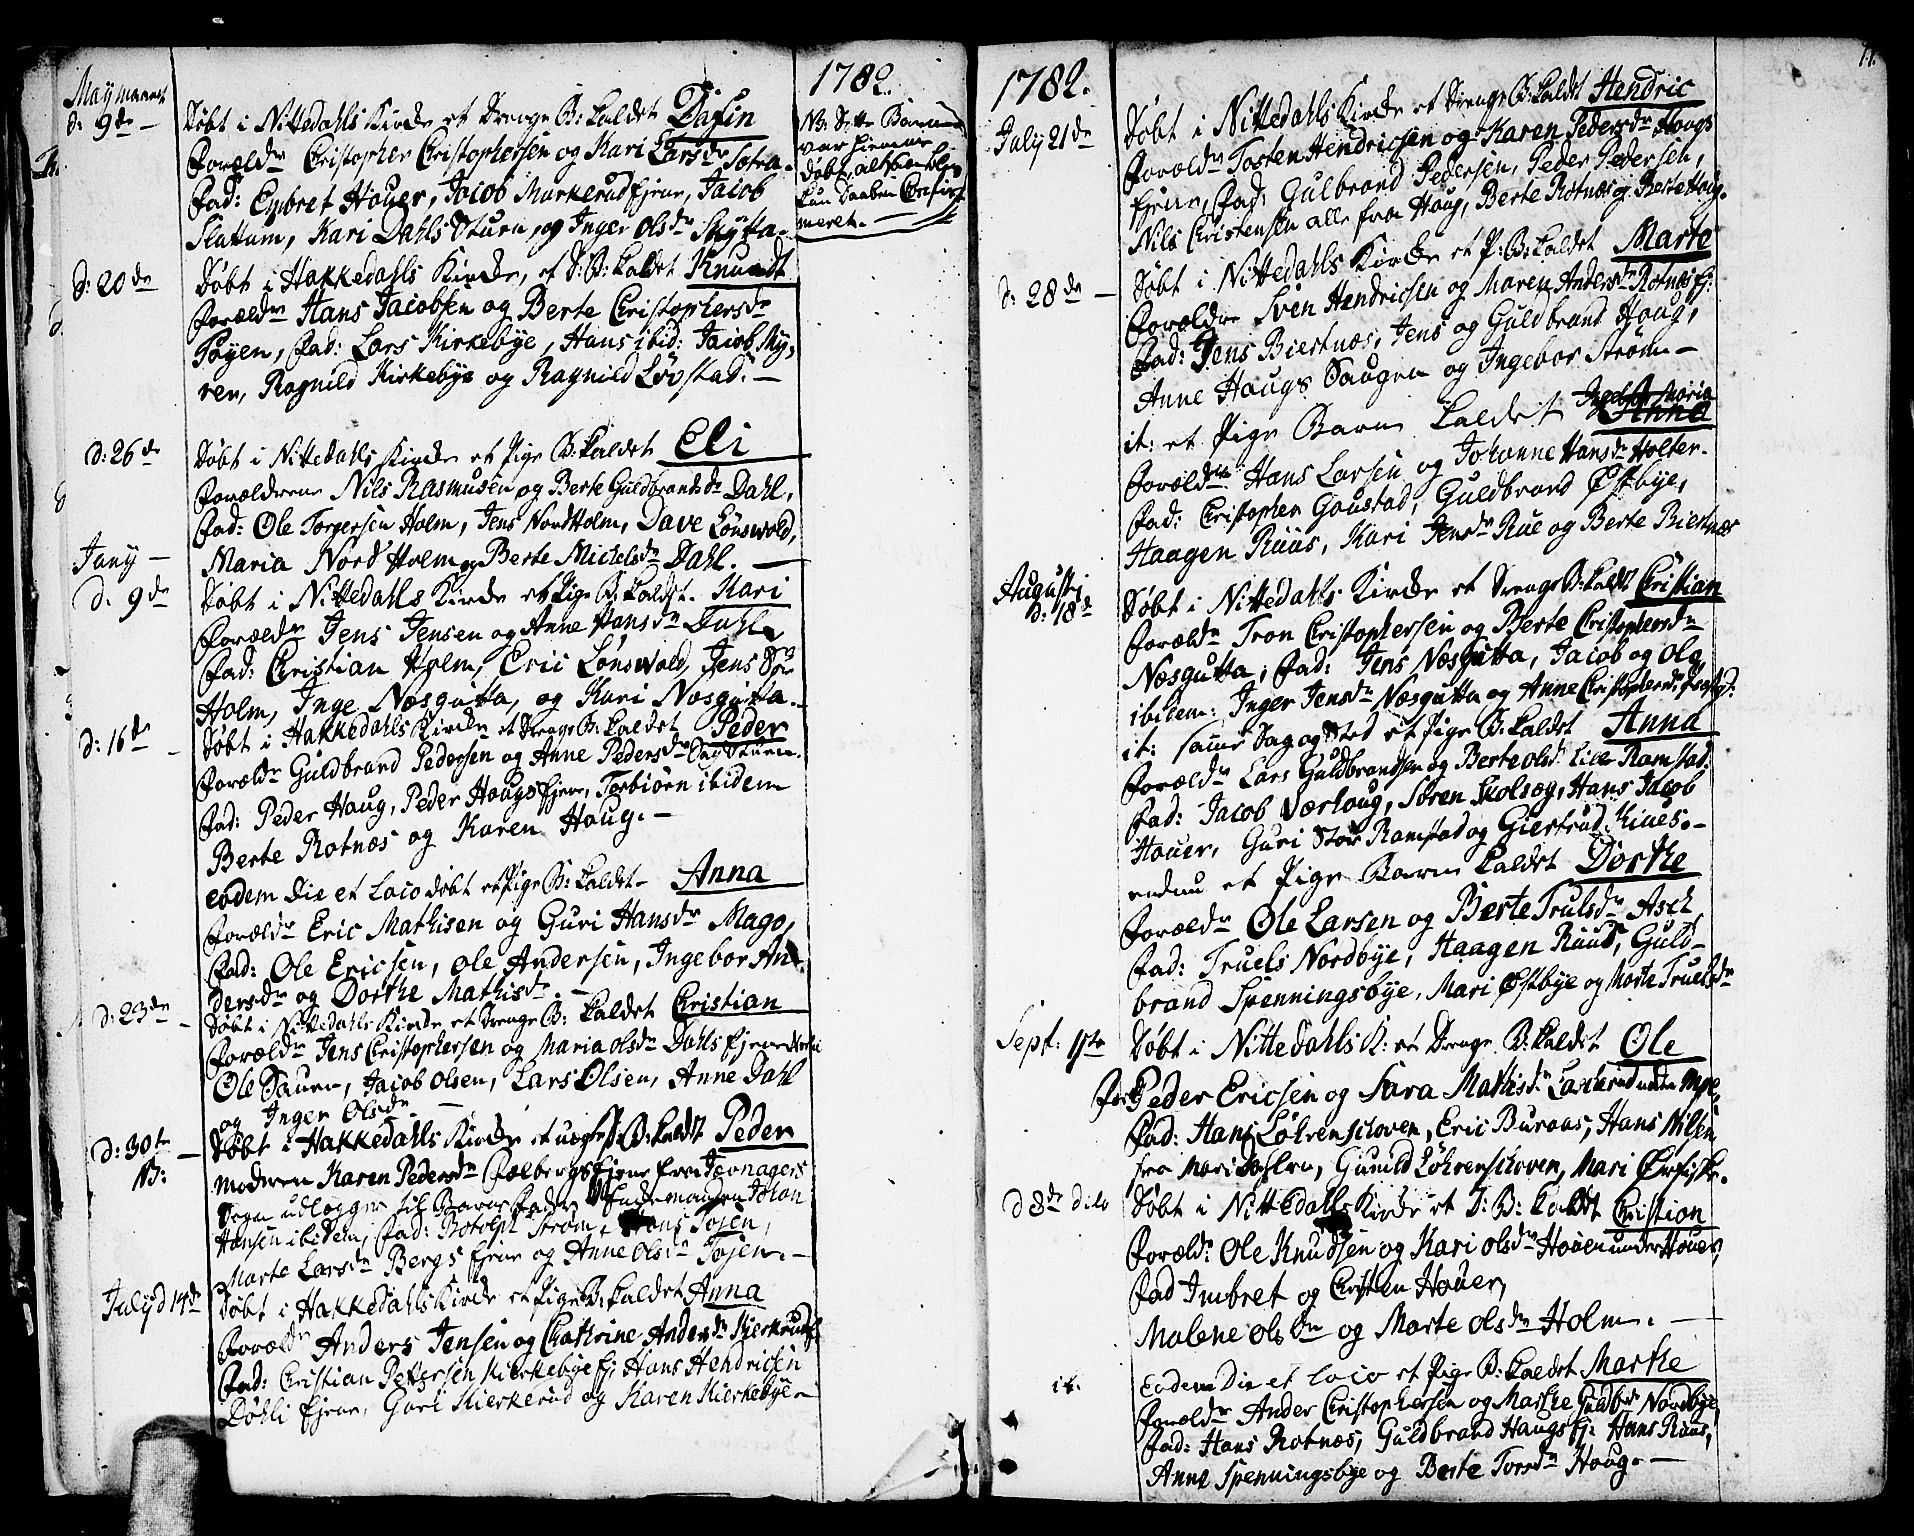 1782.
May maanet
d: 9de —
Døbt i Nittedahls Kirke et Drenge B: kaldet Dafin
Foræld: Christopher Christophersen og Kari Larsdr Sætra.
Fad: Enbret Houer, Jacob Markerud Ejene, Jacob
Slattum, Kari Dahls Stuen, og Inger Olsdr Skytta.
NB. Dette Barn
var hiemme
døbt, altsaa blev
kun Daaben Confir-
meret. —
d: 20de
Døbt i Hakkedahls Kirke, et D: B: kaldet Knuudt
Forældr Hans Jacobsen og Berte Christophersdr
Tøyen, Fad: Lars Kirkebye, Hans ibid: Jacob My,
ren, Ragnild Kirkebye og Ragnild Løvstad. —
d: 26de
Døbt i Nittedahls Kirke et Pige B: kaldet Eli
Forældrene Nils Rasmusen og Berte Guldbrandsdr Dahl,
Fad: Ole Torgersen Holm, Jens Nordholm, Dave Lønswold,
Maria Nord Holm og Berte Michelsdr Dahl. —
Juny —
d: 9de
Døbt i Nittedahls Kirke et Pige B: kaldet. Kari
Forældr Jens Jensen og Anne Hansdr Dahl
Fad: Christian Holm, Eric Lønswold, Jens
Holm, Inge Næsgutta, og Kari Næsgutta.
d: 16de —
Døbt i Hakkedahls Kirke et Drenge B: kaldet Peder
Forældr Guldbrand Pedersen og Anne Pedersdr
Fad: Peder Haug, Peder Haugs Ejene, Torbiørn ibidem
Berte Rotnæs og Karen Haug. —
eodem die et loco døbt et Pige B: kaldet — Anna
Forældr Eric Mathisen og Guri Hansdr Mago,
Fad: Ole Ericsen, Ole Andersen, Ingebor An-
dersdr og Dorthe Mathisdr —
d: 23de —
Døbt i Nittedahls Kirke et Drenge B: kaldet Christian
Forældr Jens Christophersen og Maria Olsdr Dahls Ejene
Ole Sauen, Jacob Olsen, Lars Olsen, Anne Dahl
og Inger Olsdr —
d: 30te —
NB:
Døbt i Hakkedahls Kirke et uægte B: kaldet Peder
Moderen Karen Pedersdr Ejene fra Jevnagers
Sogn udlægger til Barne Fader Johan
Hansen ibidem, Fad: Strøm, Hans Tøjen,
Marte Larsdr Bergs Ejene og Anne Olsdr Tøjen. —
July d 14de
Døbt i Hakkedahls Kirke et Pige B: kaldet Anna
Forældr Anders Jensen og Chathrine Andersdr Kierkerud
Fad: Christian Pettersen Kierkebye Ej. Hans Hendricsen
Døhli Ejene, Guri Kierkerud og Karen Kierkebye —
1782.
July 21de
Døbt i Nittedahls Kirke et Drenge B: kaldet Hendric
Forældr Tosten Hendricsen og Karen Pedersdr Haugs
Ejene, Fad: Gulbrand Pedersen, Peder Pedersen,
Nils Christensen alle fra Haug, Berte Rotnæs og Berte Haug.
d: 28de —
Døbt i Nittedahls Kirke et P: B: kaldet Marte
Forældre Sven Hendricsen og Maren Andersdr Rotnæs Ej:
Fad: Jens Biertnæs, Jens og Guldbrand Haug,
Anne Haugs Saugen og Ingebor Strøm —
Ingebor Maria
it: et Pige Barn kaldet Anna
Forældr Hans Larsen og Johanne Hansdr Holter.
Fad: Christopher Goustad, Guldbrand Østbye,
Haagen Ruus, Kari Jensdr Rue og Berte Biertnæs
Augusti
d: 18de
Døbt i Nittedahls Kirke et Drenge B: kaldt Christian
Forældr Tron Christophersen og Berte Christophersdr
Næsgutta, Fad: Jens Næsgutta, Jacob og Ole
ibidem: Inger Jensdr Næsgutta og Anne Christophersdr
it: samme Dag og Sted et Pige B: kaldet Anna
Forældr Lars Guldbrandsen og Berte Olsdr Lille Ramstad.
Fad: Jacob Værhoug, Søren Skolsæg, Hans Jacob
Houer, Guri Stor Ramstad og Giertrud Kines. —
endnu et Pige Barn kaldet Dorthe
Forældr Ole Larsen og Berte Trulsdr Asch
Fad: Truels Nordbye, Haagen Ruud, Guld-
brand Spenningsbye, Mari Østbye og Marte Truelsdr
Sept: 1ste
Døbt i Nittedahls K: et Drenge B: kaldet Ole
For: Peder Ericsen og Sara Mathisdr
Fad: Hans Løhrenschoven, Eric Buraas, Hans Nilsen
fra, Gunild Løhrenschoven, Mari
d 8de dito
Døbt i Nittedahls Kirke et D: B: kaldt Christian
Forældr. Ole Knudsen og Kari Olsdr Houen under Houer
Fad Imbret og Christen Houer,
Malene Olsdr og Marte Olsdr Holm. —
it.
Eodem Die et loco et Pige B: kaldet Marthe
Forældr Ander Christophersen og Marthe Guldbrdr Nordbye,
Fad: Hans Rotnæs, Guldbrand Haugs Ej: Hans Ruus,
Anne Spenningsbye og Berte Torsdr Haug. —